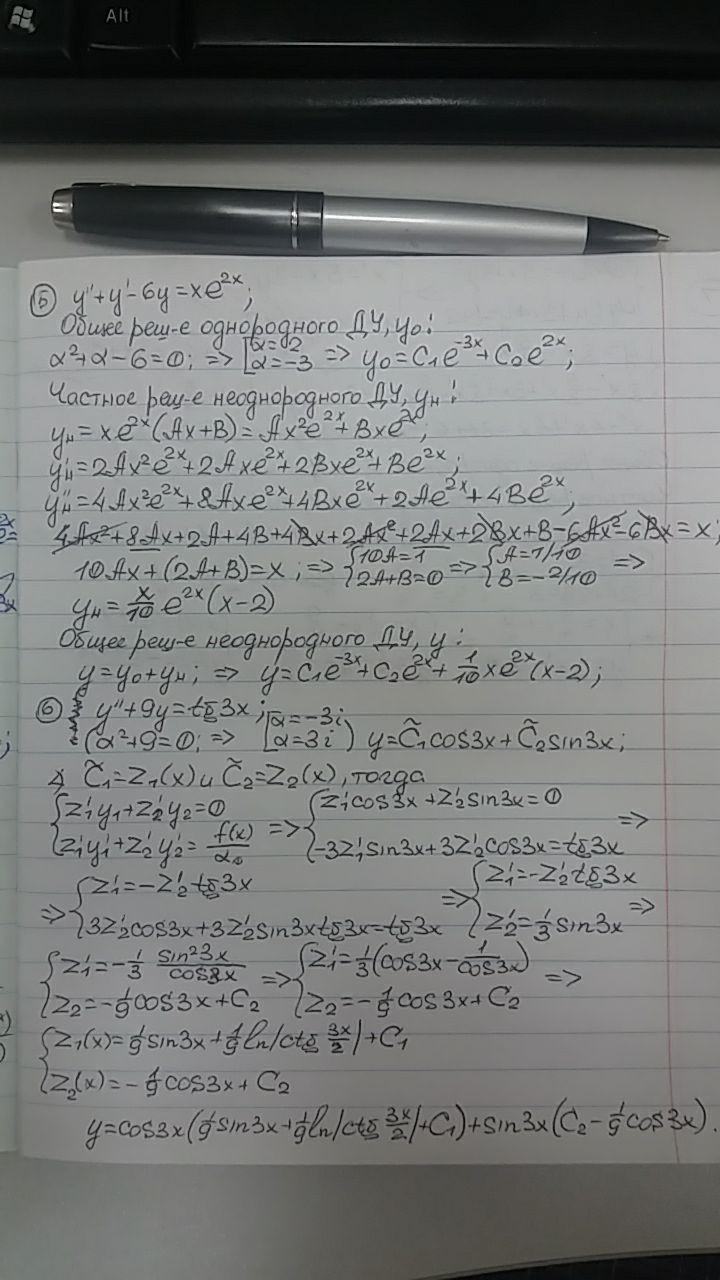 Alt
⑤ y''+y'-6y=xe^{2x};
Общее реш-е однородного ДУ, y₀:
α²+α-6=0; => [α=2 α=-3 => y₀=C₁e^{-3x}+C₂e^{2x};
Частное реш-е неоднородного ДУ, yн:
yн=xe^{2x}(Ax+B)=Ax²e^{2x}+Bxe^{2x};
y'н=2Ax²e^{2x}+2Axe^{2x}+2Bxe^{2x}+Be^{2x};
y''н=4Ax²e^{2x}+8Axe^{2x}+4Bxe^{2x}+2Ae^{2x}+4Be^{2x};
4Ax²+8Ax+2A+4B+4Bx+2Ax²+2Ax+2Bx+B-6Ax²-6Bx=x;
10Ax+(2A+B)=x; => {10A=1 2A+B=0 => {A=1/10 B=-2/10 =>
yн=x/10 e^{2x}(x-2)
Общее реш-е неоднородного ДУ, y:
y=y₀+yн; => y=C₁e^{-3x}+C₂e^{2x}+1/10 xe^{2x}(x-2);
⑥ y''+9y=tg3x;
(α²+9=0; => [α=-3i α=3i) y=C̃₁cos3x+C̃₂sin3x;
∢ C̃₁=Z₁(x) и C̃₂=Z₂(x), тогда
{Z'₁y₁+Z'₂y₂=0 Z'₁y'₁+Z'₂y'₂=f(x)/α₀ => {Z'₁cos3x+Z'₂sin3x=0 -3Z'₁sin3x+3Z'₂cos3x=tg3x =>
=> {Z'₁=-Z'₂tg3x 3Z'₂cos3x+3Z'₂sin3xtg3x=tg3x => {Z'₁=-Z'₂tg3x Z'₂=1/3 sin3x =>
{Z'₁=-1/3 sin²3x/cos3x Z₂=-1/9 cos3x+C₂ => {Z'₁=1/3(cos3x-1/cos3x) Z₂=-1/9 cos3x+C₂ =>
{Z₁(x)=1/9 sin3x+1/9 ln|ctg 3x/2|+C₁
Z₂(x)=-1/9 cos3x+C₂
y=cos3x(1/9 sin3x+1/9 ln|ctg 3x/2|+C₁)+sin3x(C₂-1/9 cos3x).